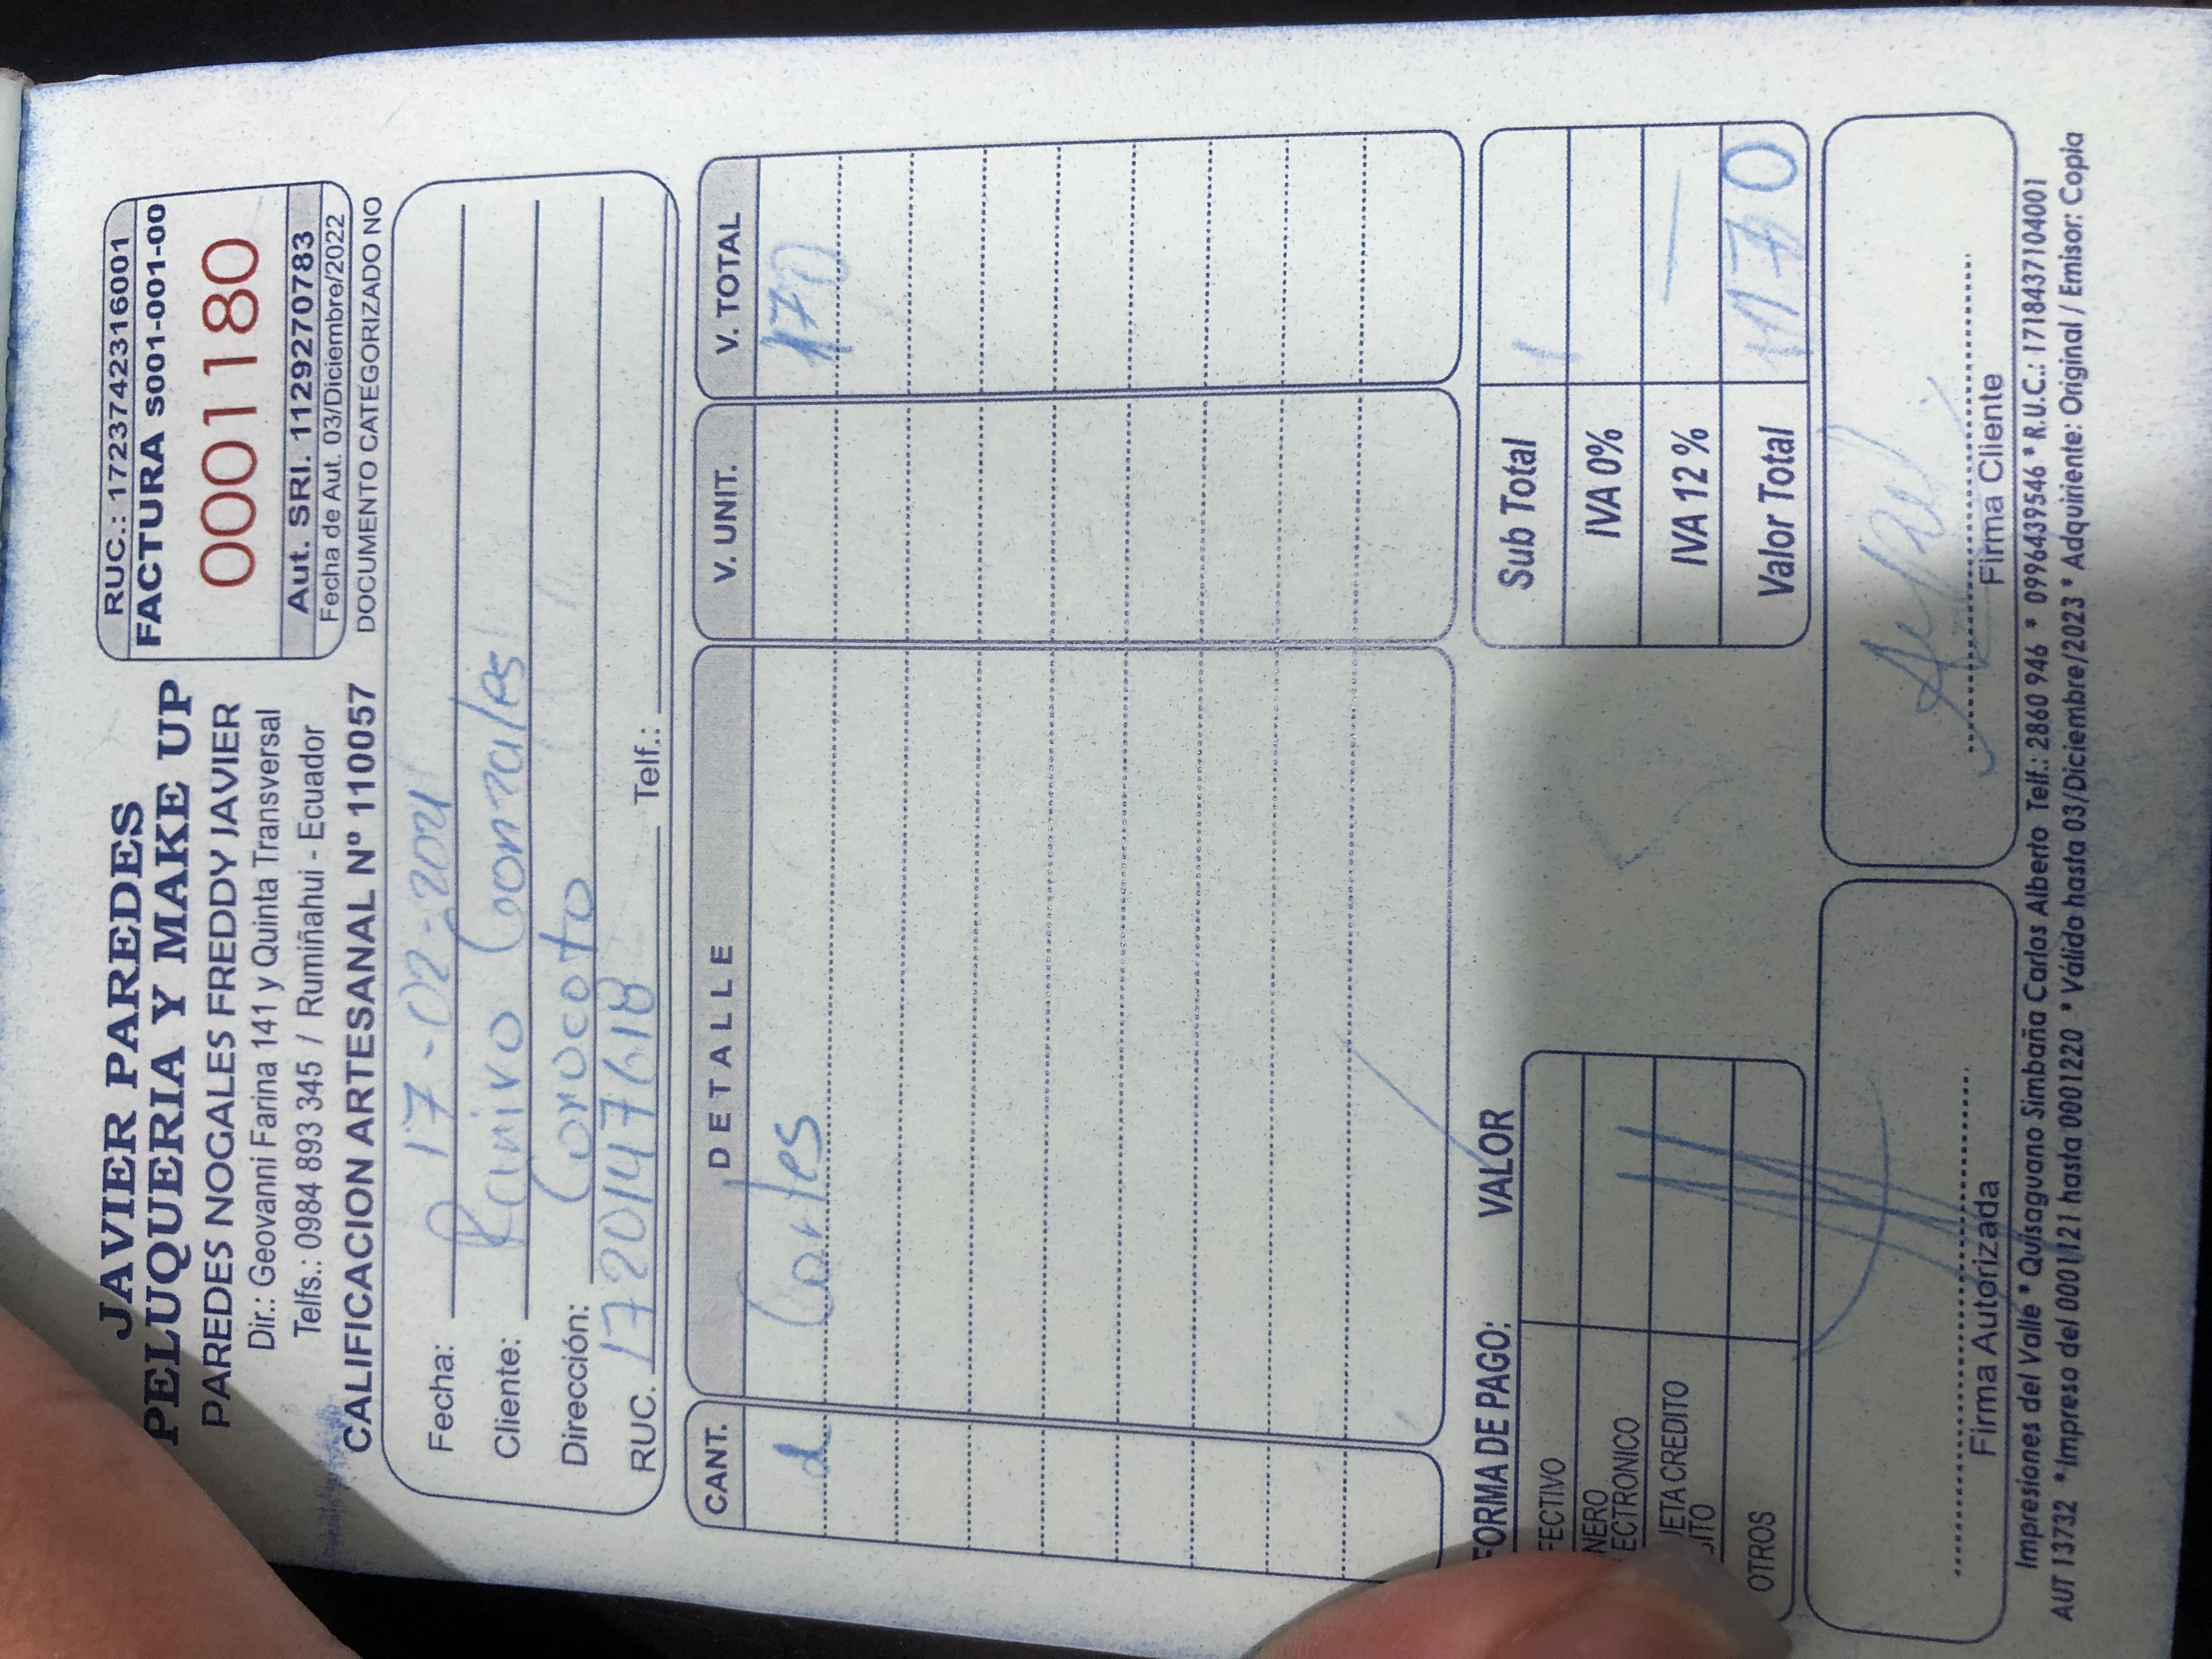 JAVIER PAREDES
PELUQUERIA Y MAKE UP
PAREDES NOGALES FREDDY JAVIER
Dir.: Geovanni Farina 141 y Quinta Transversal
Telfs.: 0984 893 345 / Rumiñahui - Ecuador
CALIFICACION ARTESANAL Nº 110057
RUC.: 1723742316001
FACTURA S001-001-00
0001180
Aut. SRI. 1129270783
Fecha de Aut. 03/Diciembre/2022
DOCUMENTO CATEGORIZADO NO
Fecha: 17-02-2021
Cliente: Ramiro Gonzales
Dirección: Corocoto
RUC. 1720147618 Telf.:
CANT. DETALLE V. UNIT. V. TOTAL
Cortes 170
FORMA DE PAGO: VALOR
FECTIVO
NERO
ECTRONICO
JETA CREDITO
ITO
OTROS
Sub Total
IVA 0%
IVA 12 % —
Valor Total 170
Firma Autorizada
Firma Cliente
Impresiones del Valle * Quisaguano Simbaña Carlos Alberto Telf.: 2860 946 * 0996439546 * R.U.C.: 1718437104001
AUT 13732 * Impreso del 0001121 hasta 0001220 * Válido hasta 03/Diciembre/2023 * Adquiriente: Original / Emisor: Copia